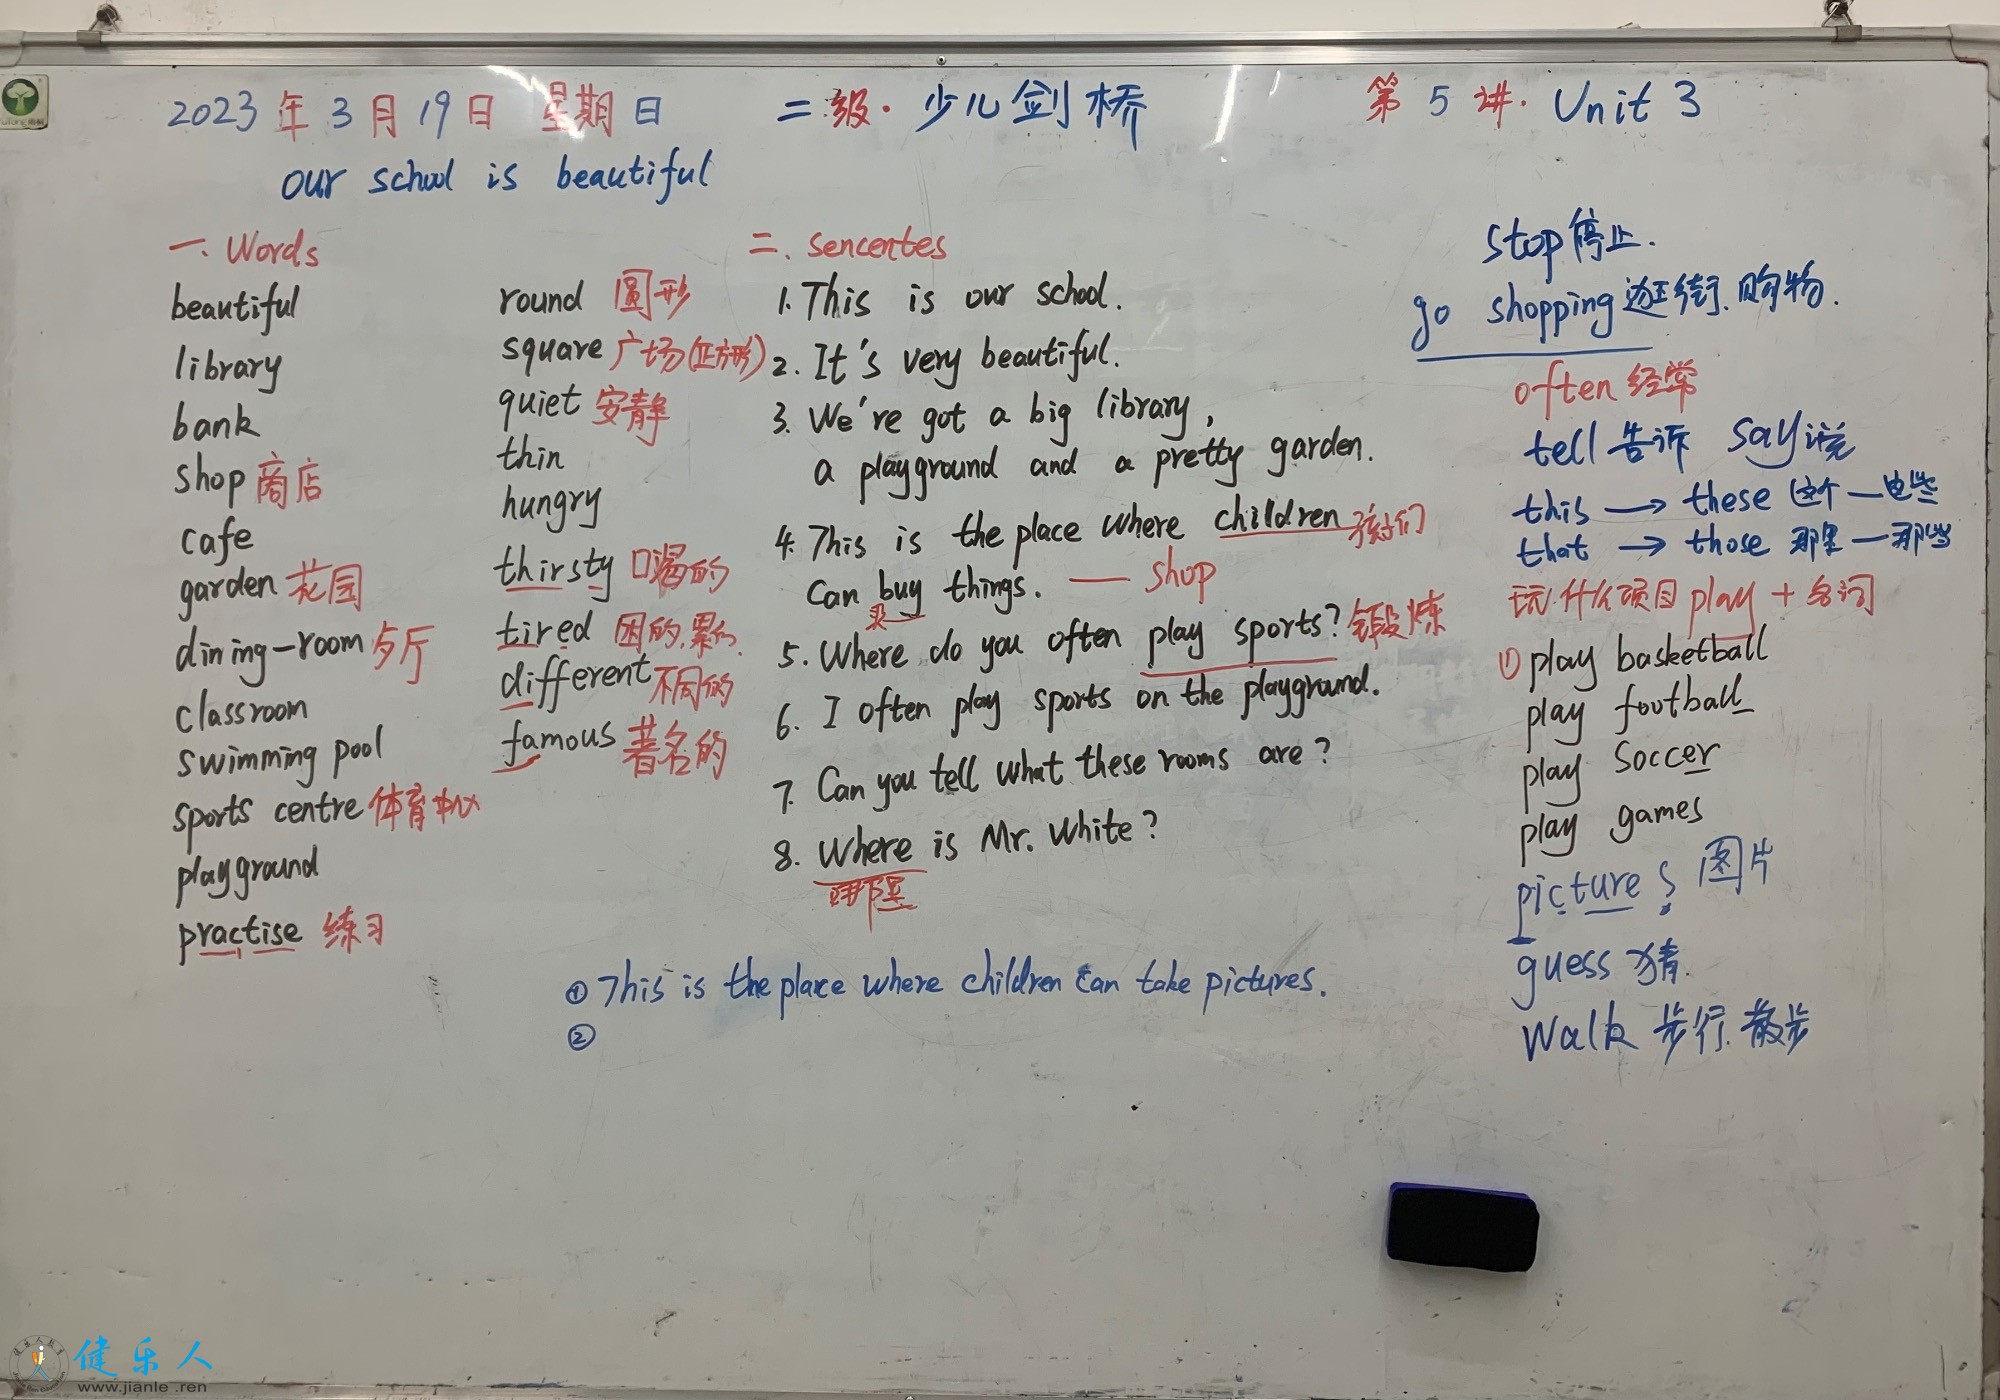 2023年3月19日 星期日 二级·少儿剑桥 第5讲·Unit 3
our school is beautiful
一. Words
beautiful
library
bank
shop 商店
cafe
garden 花园
dining-room 歺厅
classroom
swimming pool
sports centre 体育中心
playground
practise 练习
round 圆形
square 广场(正方形)
quiet 安静
thin
hungry
thirsty 口渴的
tired 困的,累的
different 不同的
famous 著名的
二. sencentes
1. This is our school.
2. It's very beautiful.
3. We're got a big library,
a playground and a pretty garden.
4. This is the place where children 孩子们
Can buy things. — shop
买
5. Where do you often play sports? 锻炼
6. I often play sports on the playground.
7. Can you tell what these rooms are?
8. Where is Mr. White?
哪里
① This is the place where children can take pictures.
②
stop 停止.
go shopping 逛街.购物.
often 经常
tell 告诉 say 说
this → these 这个—这些
that → those 那里—那些
玩什么项目 play + 名词
① play basketball
play football
play soccer
play games
picture s 图片
guess 猜.
Walk 步行.散步
健乐人
www.jianle.ren